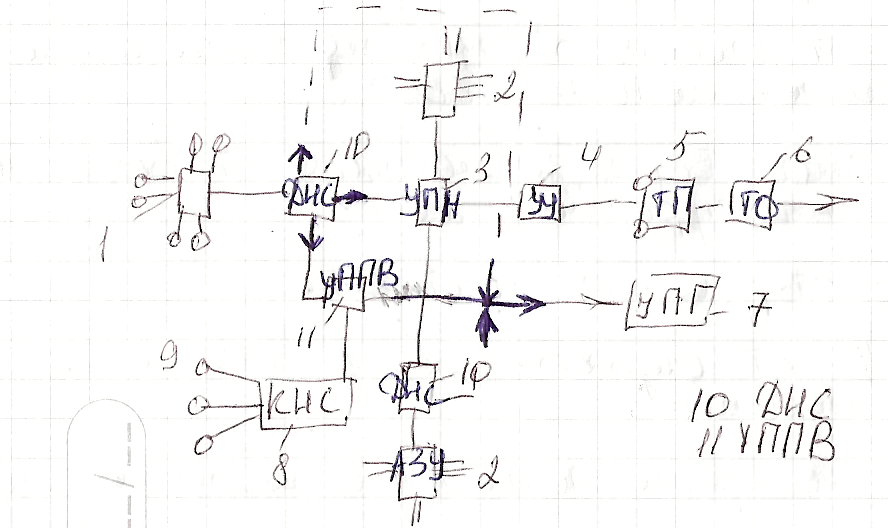 2
10 3 4 5 6
ДНС УПН УУ ТП ТФ
1
УППВ УПГ 7
11
9
КНС ДНС 10
8
АЗУ 2
10 ДНС
11 УППВ